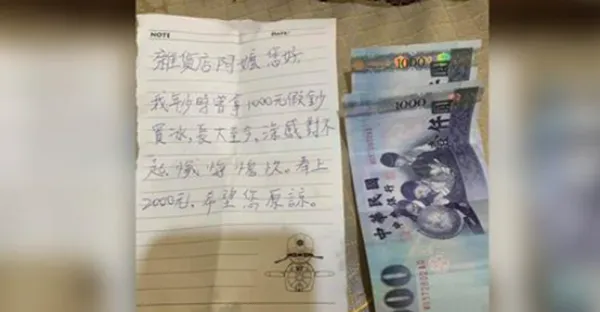 NOTE Date:
雜貨店阿嬤您好
我年少時曾拿1000元假鈔
買冰,長大至今,深感對不
起懺悔。奉上
2000元,希望您原諒。
1000
1000
1000
仟圓
中華民國
中央銀行
000